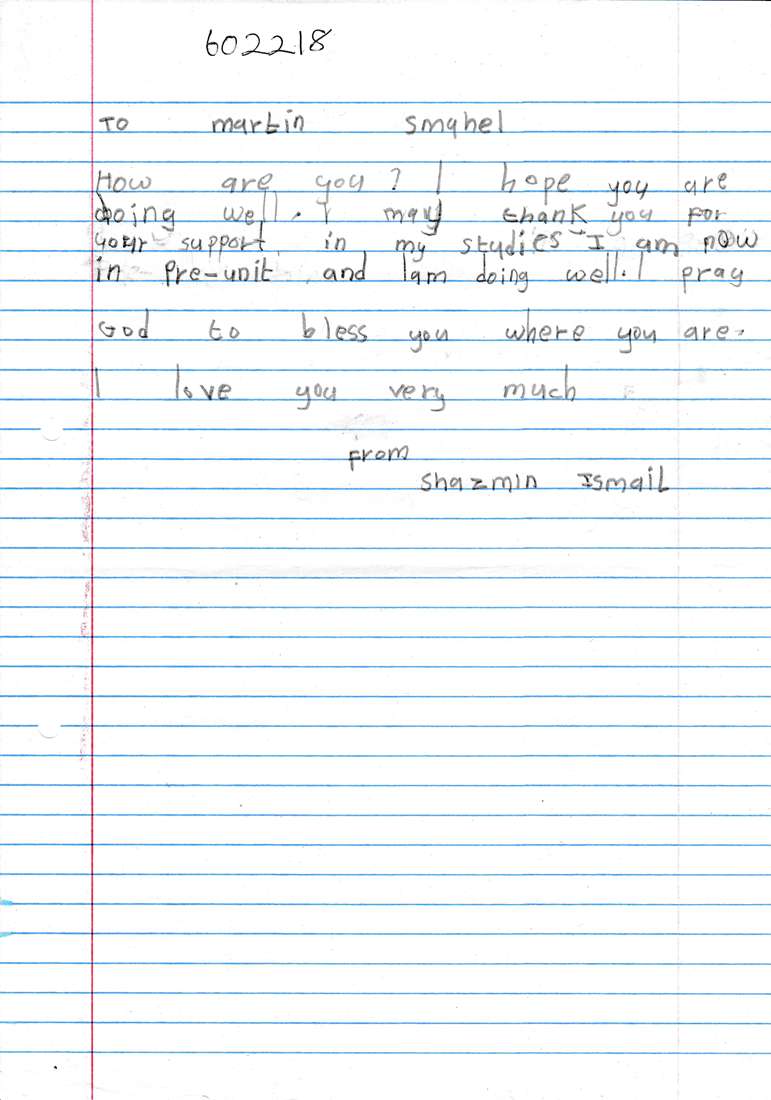 602218
TO martin Smahel
How are you? I hope you are
doing well. I may thank you for
your support in my studies I am now
in Pre-unit and Iam doing well. I pray
God to bless you where you are.
I love you very much
From
Shazmin Ismail